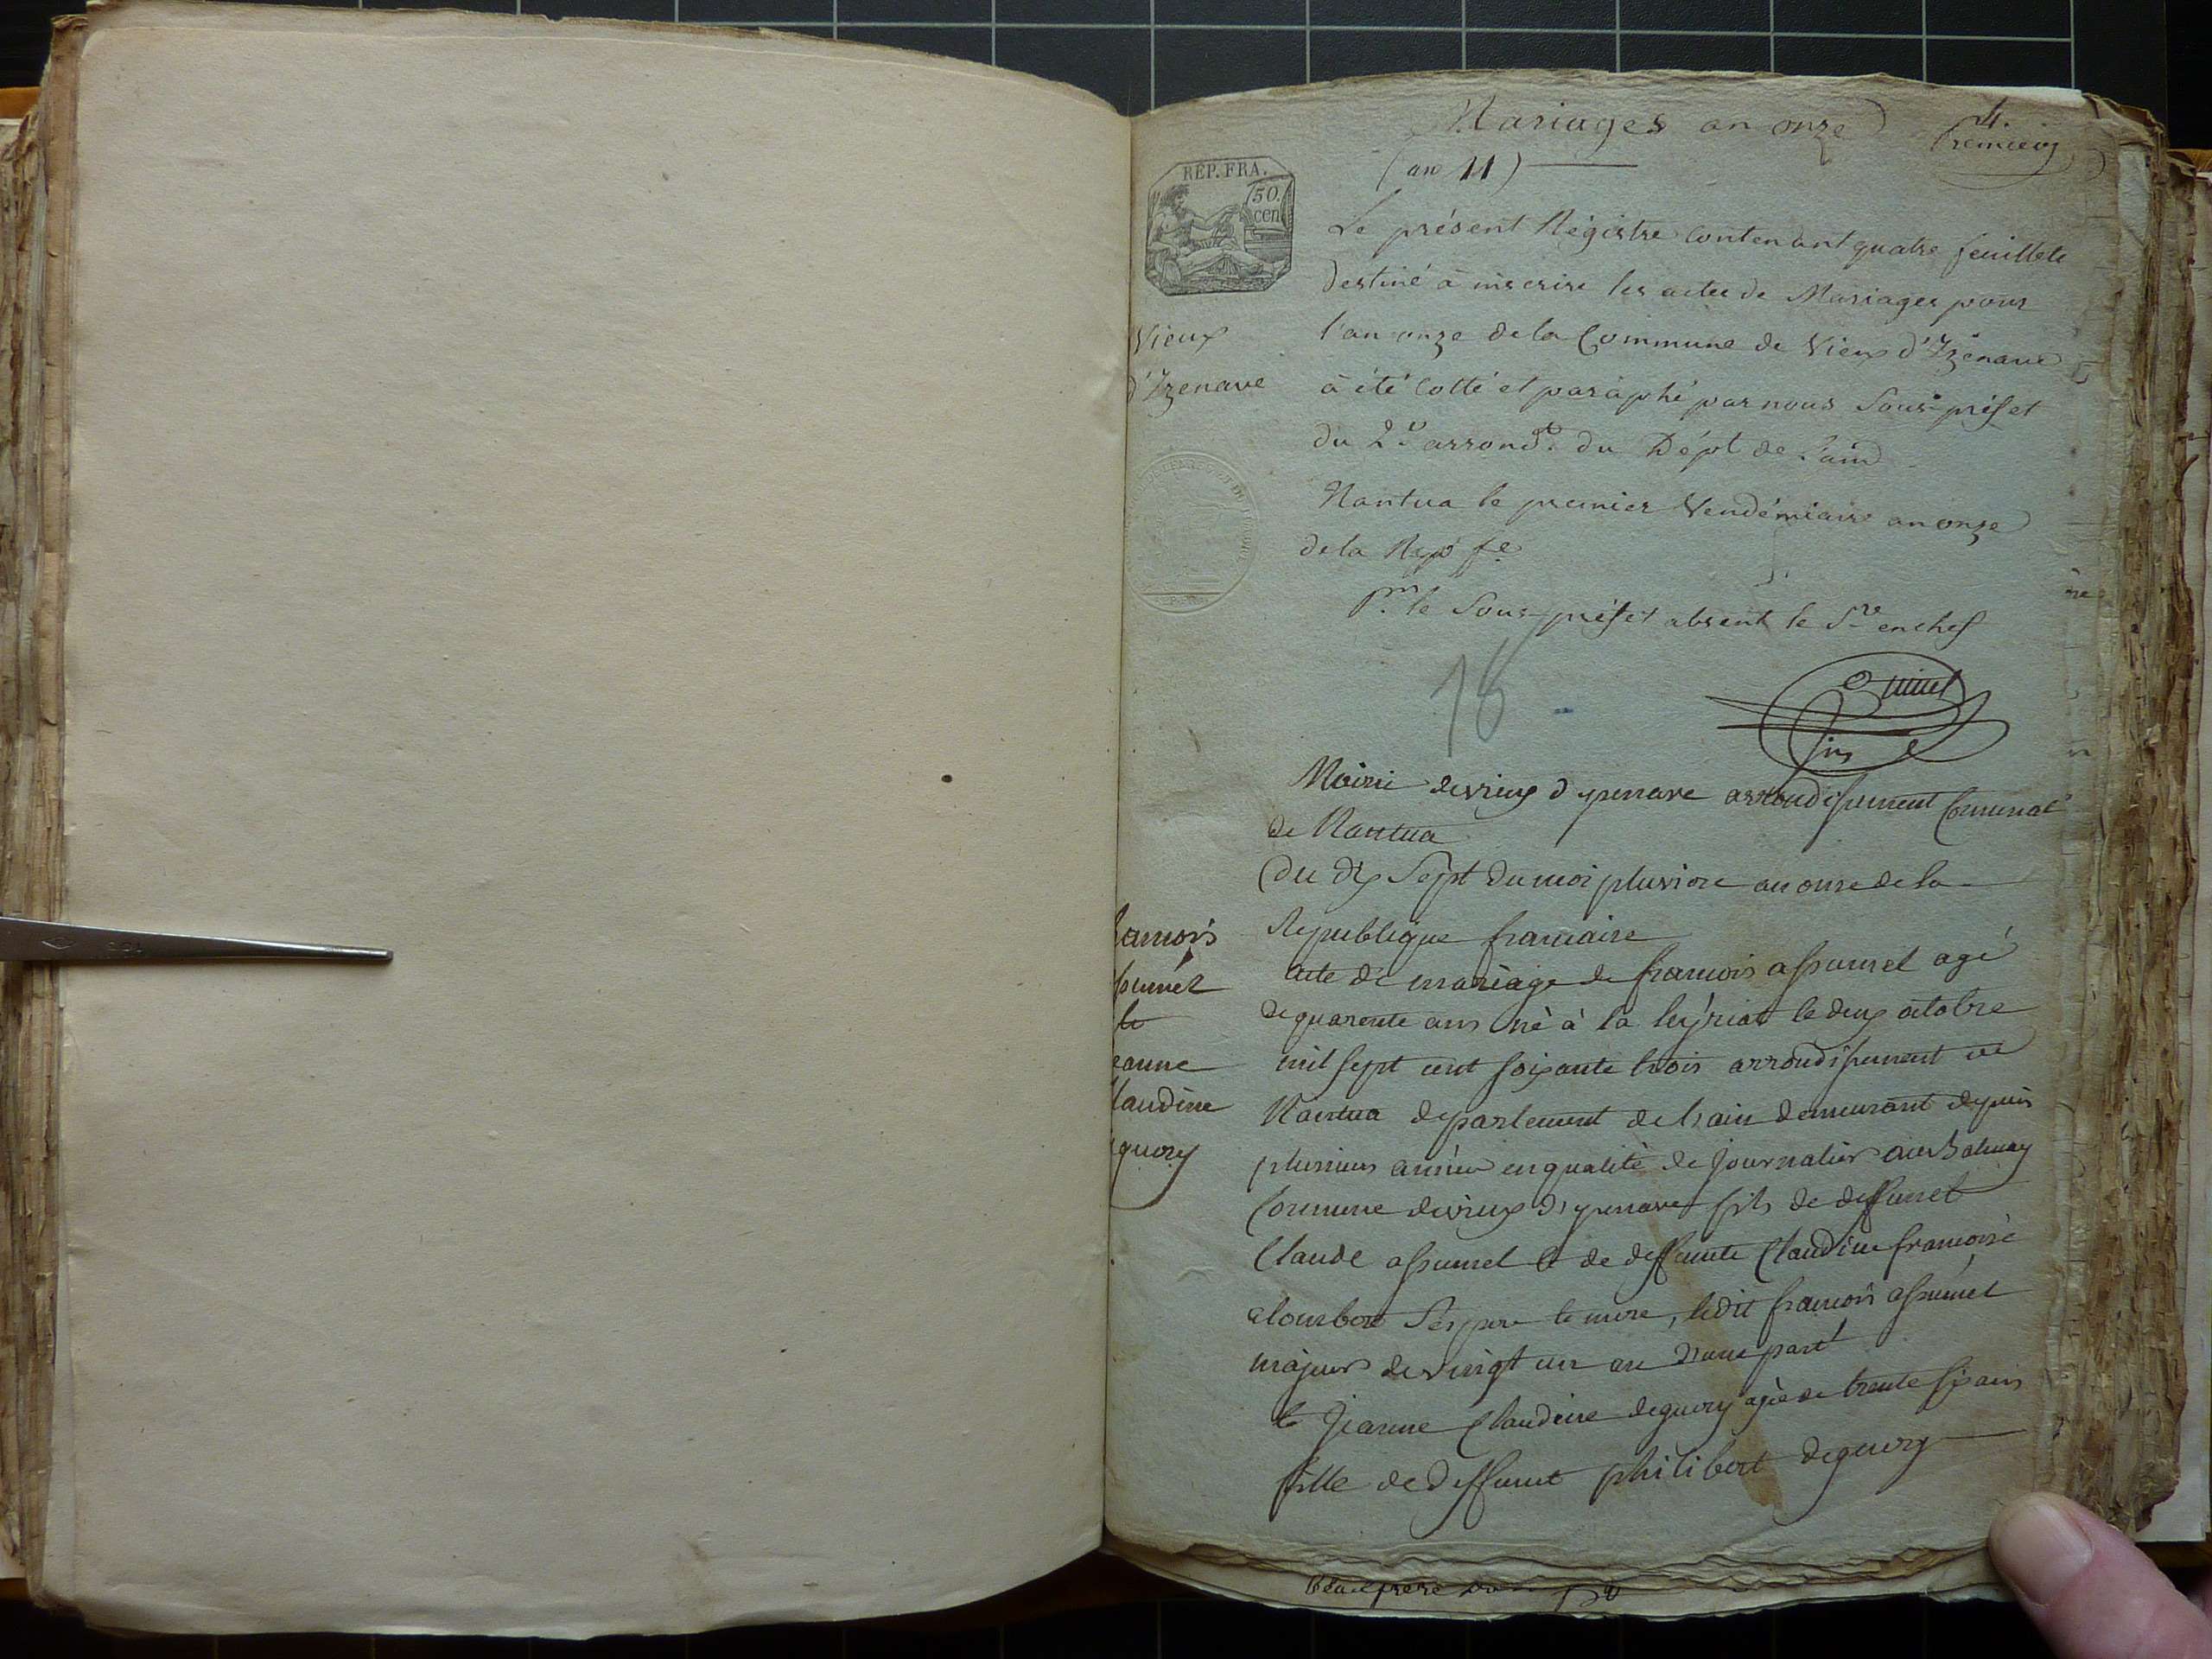 Mariages an onze
4.
premier
(an 11)
RÉP. FRA.
50.
cen
Le présent Régistre contenant quatre feuillets
destiné à inscrire les actes de Mariages pour
l'an onze de la Commune de Vieux d'Izenave
Vieux
d'Izenave
a été cotté et paraphé par nous Sous-préfet
du 2e arrondt. du Dépt de l'ain
Nantua le premier Vendémiaire an onze
de la Rep fe
Pr. le Sous-préfet absent le Sre en chef
18
Mairie de vieux d yzenave arrondissement Communal
de Nantua
Du dix Sept du moi pluviose an onse de la
Republique francaise
acte de mariage de francois assumel agé
de quarente ans né à la leyriat le deux octobre
mil sept cent soixante trois arrondissement de
Nantua departement de l'ain demeurant depuis
plusieurs année en qualité de journalier au balmay
Commune de vieux d'yzenave fils de deffunct
Claude assumel et de deffunte Claudine francoise
Ses pere et mere, ledit francois assumel
majeur de vingt un ans d'une part
et Jeanne Claudine deguery agée de trente six ans
fille de deffunt philibert deguery
ancois
sumel
et
eanne
laudine
guery
beaufrere